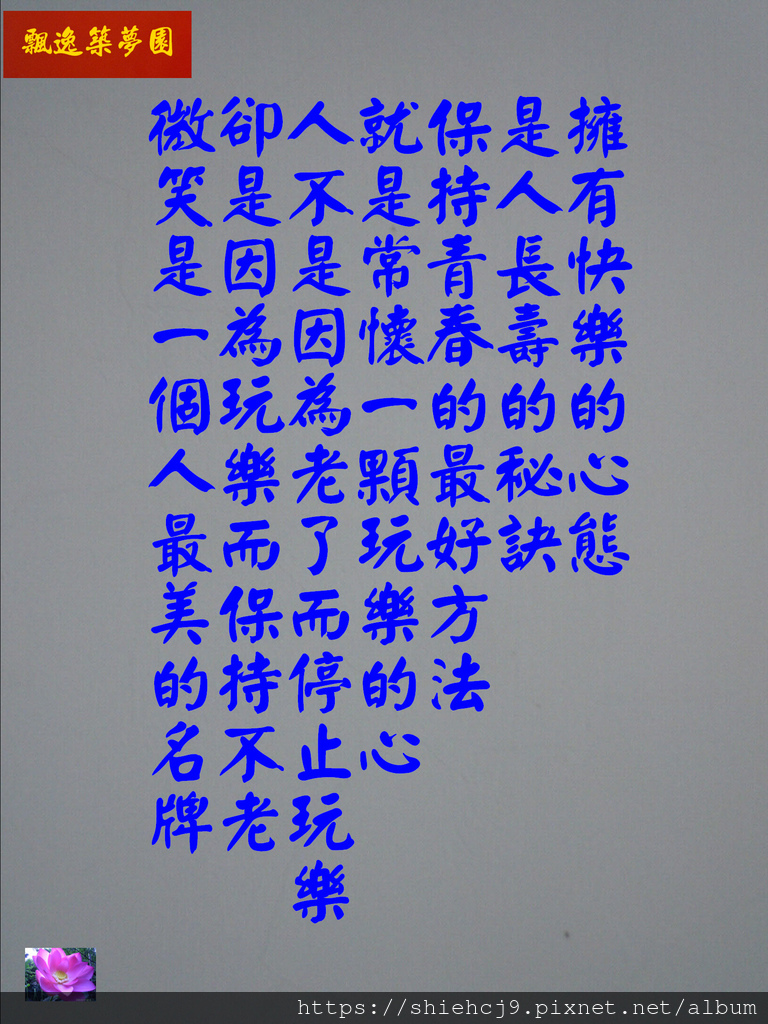 飄逸築夢園
擁有快樂的心態
是人長壽的秘訣
保持青春的最好方法
就是常懷一顆玩樂的心
人不是因為老了而停止玩樂
卻是因為玩樂而保持不老
微笑是一個人最美的名牌
https://shiehcj9.pixnet.net/album